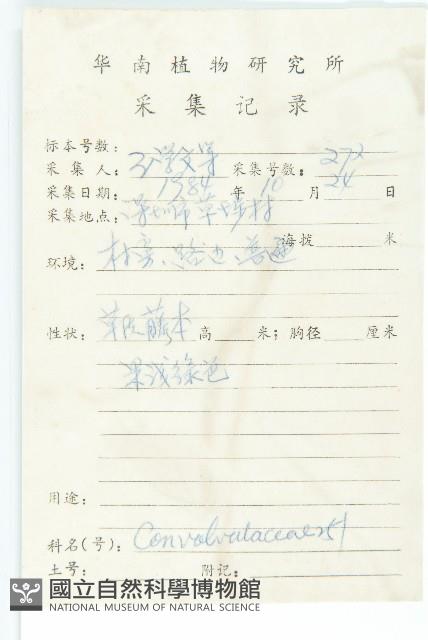 华南植物研究所
采集记录
标本号数:
采集人: 采集号数: 272
采集日期: 1984 年 10 月 24 日
采集地点: 深圳市草埔村
海拔 米
环境: 村旁、路边、普通
性状: 草质藤本 高 米; 胸径 厘米
果浅绿色
用途:
科名(号): Convolvulaceae 251
土号: 附记:
國立自然科學博物館
NATIONAL MUSEUM OF NATURAL SCIENCE